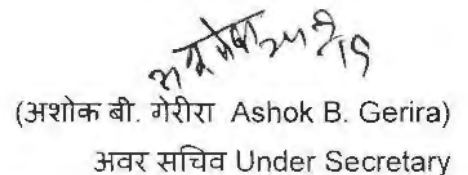 (अशोक बी. गेरीरा Ashok B. Gerira)
अवर सचिव Under Secretary